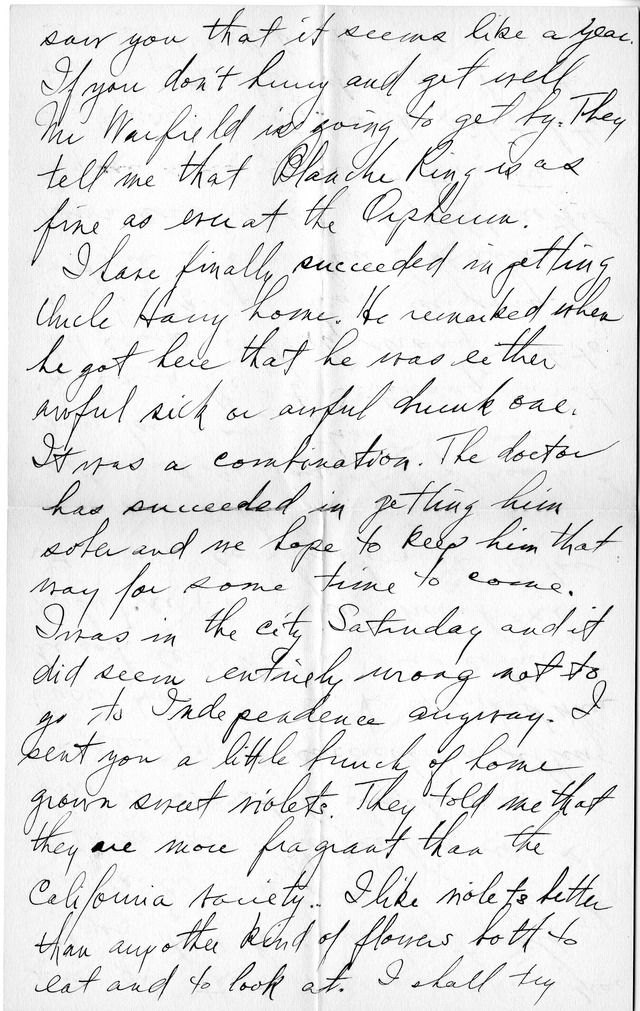 saw you that it seems like a year.
If you don't hurry and get well
Mr Warfield is going to get by. They
tell me that Blanche Ring is as
fine as ever at the Orpheum.
I have finally succeeded in getting
Uncle Harry home. He remarked when
he got here that he was either
awful sick or awful drunk one.
It was a combination. The doctor
has succeeded in getting him
sober and we hope to keep him that
way for some time to come.
I was in the city Saturday and it
did seem entirely wrong not to
go to Independence anyway. I
sent you a little bunch of home
grown sweet violets. They told me that
they are more fragrant than the
California variety. I like violets better
than any other kind of flowers both to
eat and to look at. I shall try